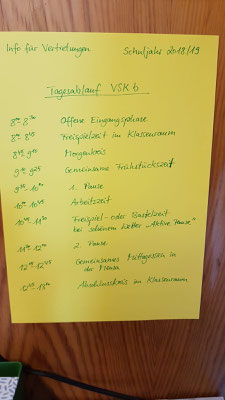 Info für Vertretungen Schuljahr 2018/19
Tagesablauf VSK b
8⁰⁰-8³⁰ Offene Eingangsphase
8³⁰-8⁴⁵ Freispielzeit im Klassenraum
8⁴⁵-9¹⁰ Morgenkreis
9¹⁰-9²⁵ Gemeinsame Frühstückszeit
9³⁵-10⁰⁰ 1. Pause
10⁰⁰-10⁴⁵ Arbeitszeit
10⁴⁵-11³⁰ Freispiel- oder Bastelzeit
bei schönem Wetter „Aktive Pause"
11³⁰-12⁰⁰ 2. Pause
12⁰⁰-12⁴⁵ Gemeinsames Mittagessen in
der Mensa
12⁴⁵-13⁰⁰ Abschlusskreis im Klassenraum